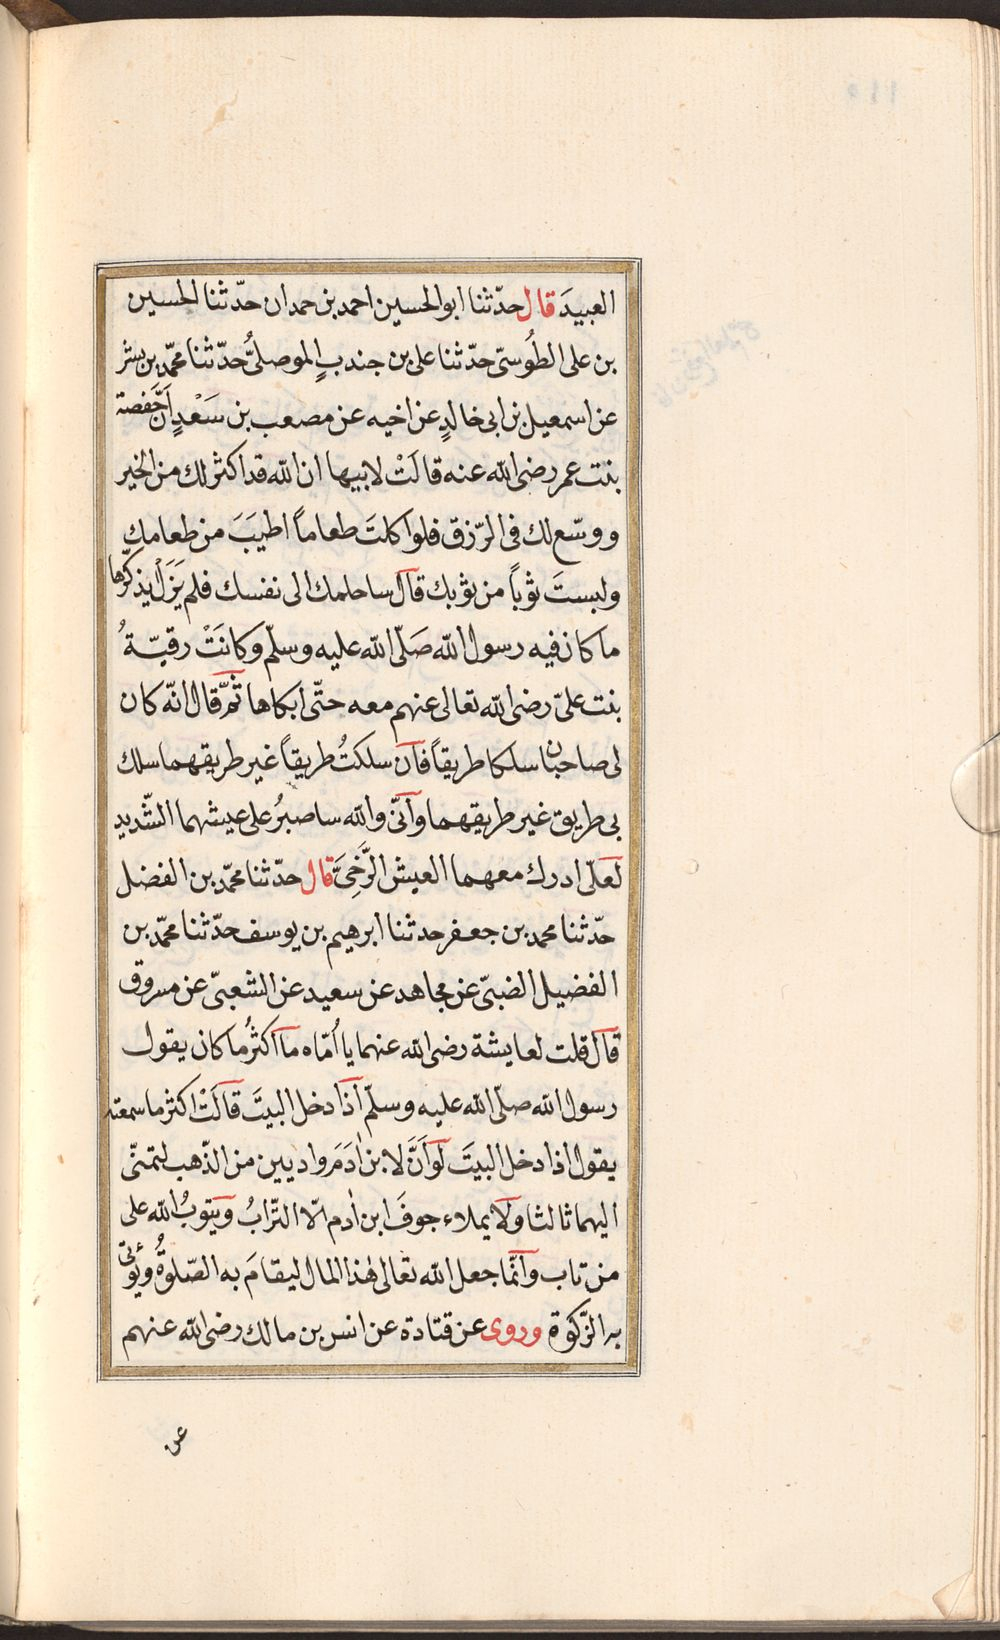 العبيدَ قال حدّثنا ابوالحسين احمد بن حمدان حدّثنا الحسين
بن على الطُوسىّ حدّثنا على بن جندبٍ الموصلىُّ حدّثنا محمّد بن بشر
عن اسمعيل بن ابى خالدٍ عن اخيه عن مصعب بن سَعْدٍ انّ حفصة
بنت عمر رضى الله عنه قالَتْ لابيها ان الله قد اكثر لك من الخير
ووسّع لك فى الرّزق فلو اكلتَ طعاماً اطيَبَ من طعامك
ولبستَ ثوباً من ثوبك قال ساحلمك الى نفسك فلم يَزَلْ يذكّرها
ما كان فيه رسول الله صَلّى الله عليه وسلّم وكانَتْ رقيّةُ
بنت علىّ رضى الله تعالى عنهم معه حتّى ابكاها ثمّ قال انّه كان
لى صاحبان سلكا طريقاً فان سلكتُ طريقاً غير طريقهما سلك
بى طريق غير طريقهما وانّى والله ساصبرُ على عيشهما الشّديد
لعلّى ادرك معهما العيش الرَّخِىَّ قال حدّثنا محمّد بن الفضل
حدّثنا محمد بن جعفر حدثنا ابرهيم بن يوسف حدّثنا محمّد بن
الفضيل الضبىّ عن مجاهد عن سعيد عن الشعبىّ عن مسروق
قال قلت لعايشة رضى الله عنهما يا اُمّاه ما اكثرُ ما كان يقول
رسول الله صلّى الله عليه وسلّم اذا دخل البيتَ قالَتْ اكثر ما سمعته
يقول اذا دخل البيتَ لو اَنَّ لابن اٰدَمَ واديين من الذّهب لتمنّى
اليهما ثالثا ولا يملاء جوفَ ابن اٰدم الّا التّرابُ ويتوبُ الله على
من تاب وانّما جعل الله تعالى هٰذا المال ليقامَ به الصّلوةُ ويؤتى
به الزّكوة وروى عن قتادة عن انس بن مالك رضى الله عنهم
عن